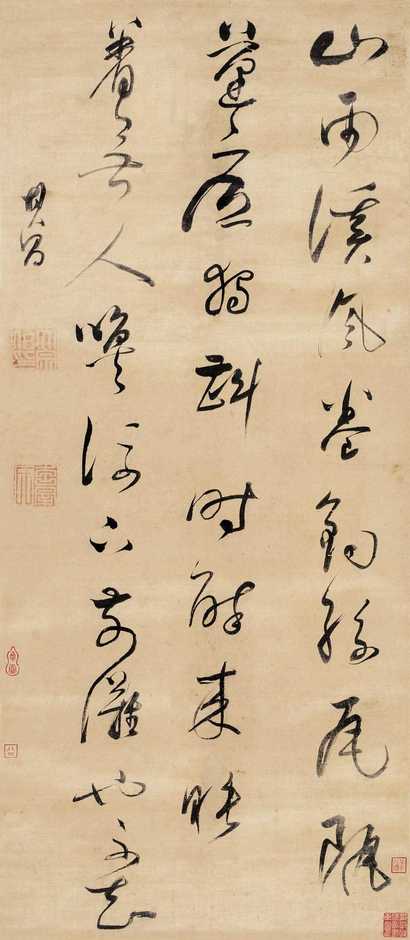 山雨溪風卷釣絲瓦甌
蓬底獨斟時醉來睡
著無人喚流下前灘也不知
其昌